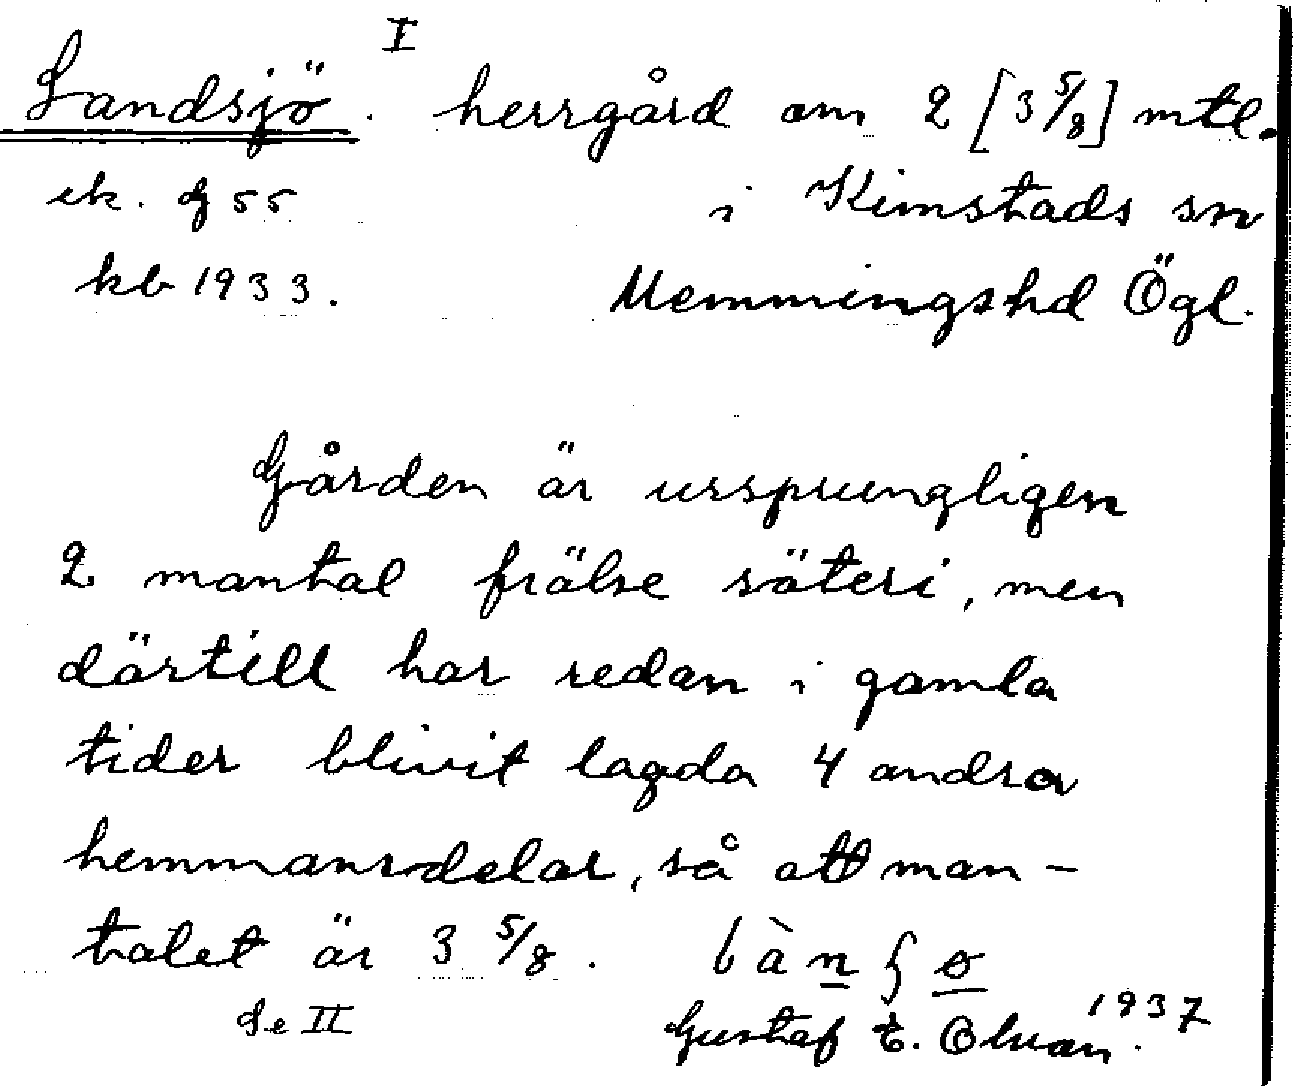 I
Landsjö. herrgård om 2 [3 5/8] mtl.
ek. bl 55 i Kimstads sn
kb 1933. Memmingshd Ögl.
Gården är ursprungligen
2 mantal frälse säteri, men
därtill har redan i gamla
tider blivit lagda 4 andra
hemmansdelar, så att man-
talet är 3 5/8.
Se II
Gustaf E. 1937